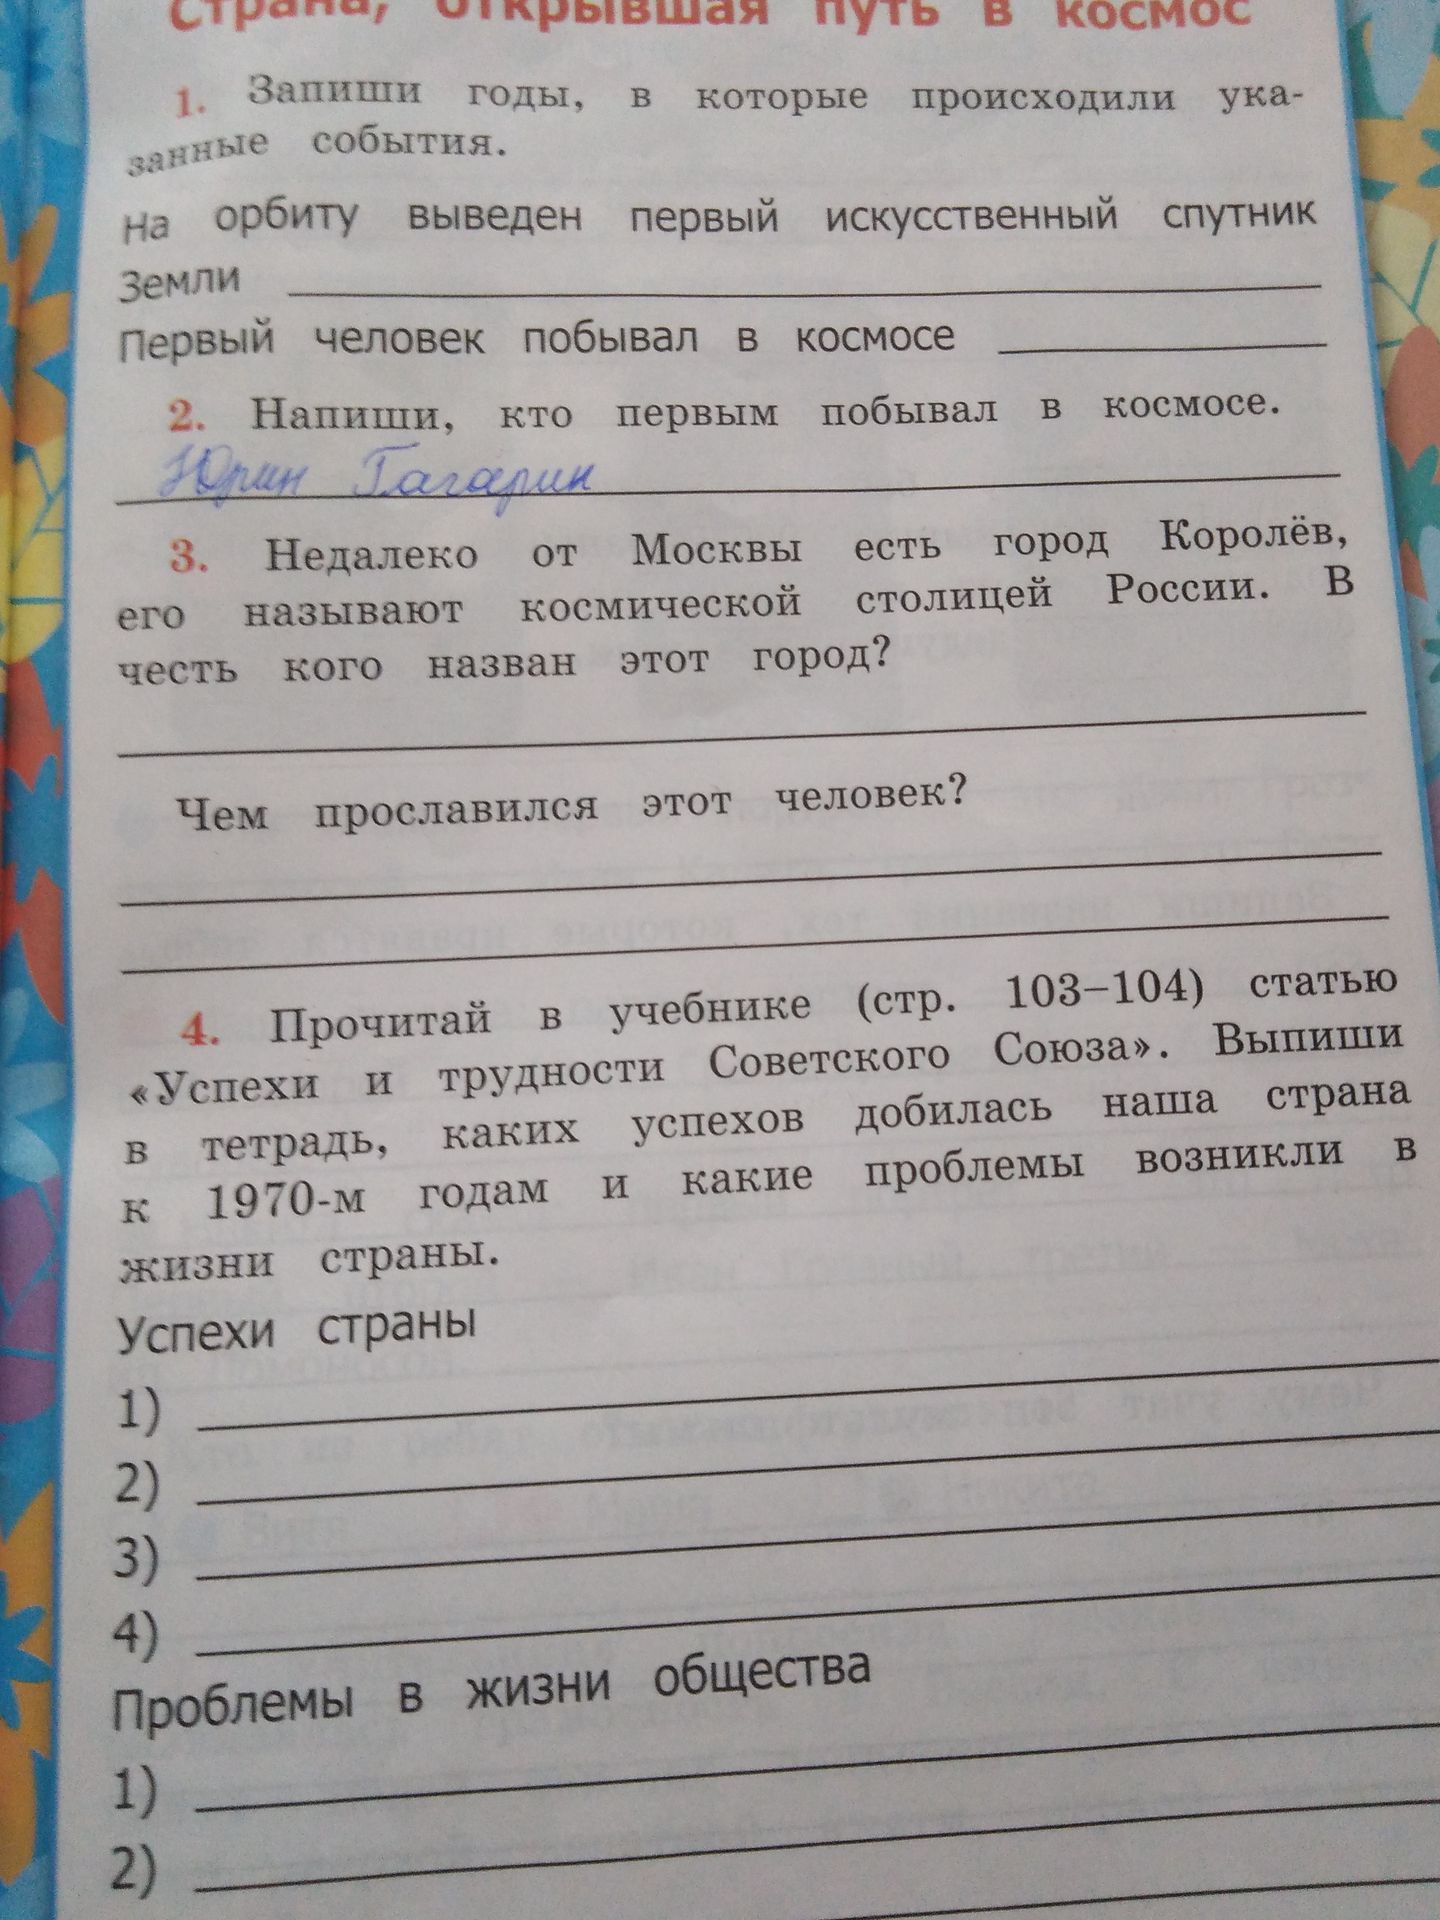 Страна, открывшая путь в космос
1. Запиши годы, в которые происходили ука-
занные события.
На орбиту выведен первый искусственный спутник
Земли
Первый человек побывал в космосе
2. Напиши, кто первым побывал в космосе.
Юрин Гагарин
3. Недалеко от Москвы есть город Королёв,
его называют космической столицей России. В
честь кого назван этот город?
Чем прославился этот человек?
4. Прочитай в учебнике (стр. 103–104) статью
«Успехи и трудности Советского Союза». Выпиши
в тетрадь, каких успехов добилась наша страна
к 1970-м годам и какие проблемы возникли в
жизни страны.
Успехи страны
1)
2)
3)
4)
Проблемы в жизни общества
1)
2)